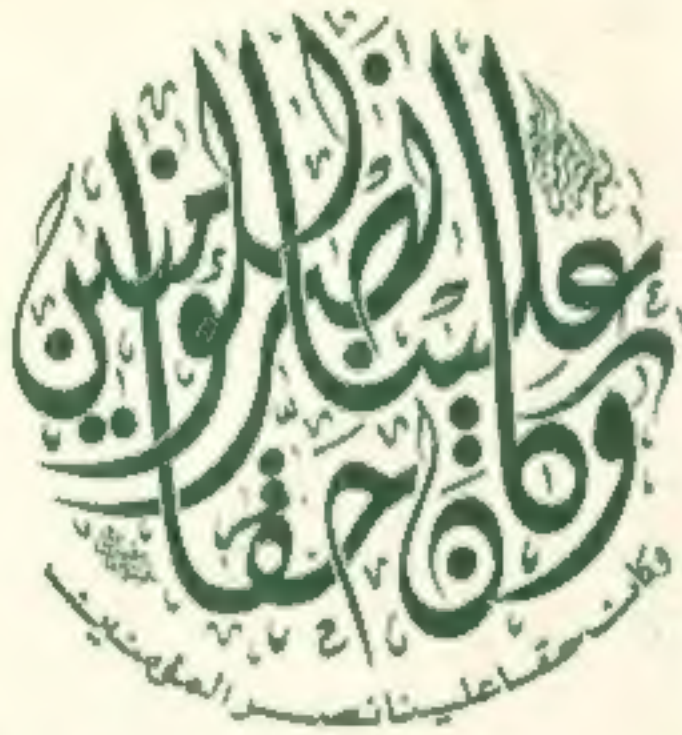 وكان حقا علينا نصر المؤمنين
وكان حقا علينا نصر المؤمنين